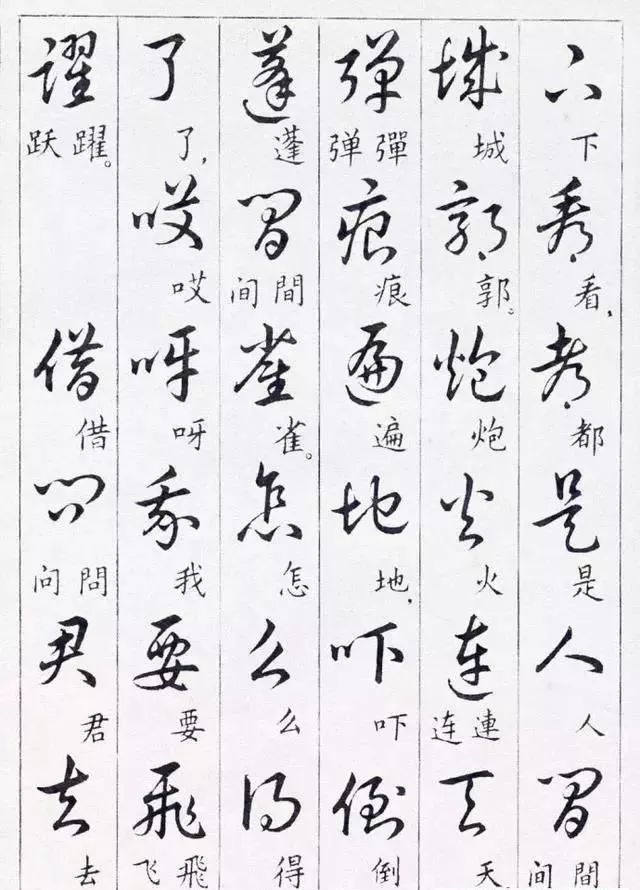 下看都是人間
下看，都是人間间
城郭炮火連天
城郭。炮火連连天
彈痕遍地吓倒
彈弹痕遍地，吓倒
蓬間雀怎么得
蓬間间雀。怎么得
了哎呀我要飛
了，哎呀我要飛飞
躍借問君去
躍跃。借問问君去